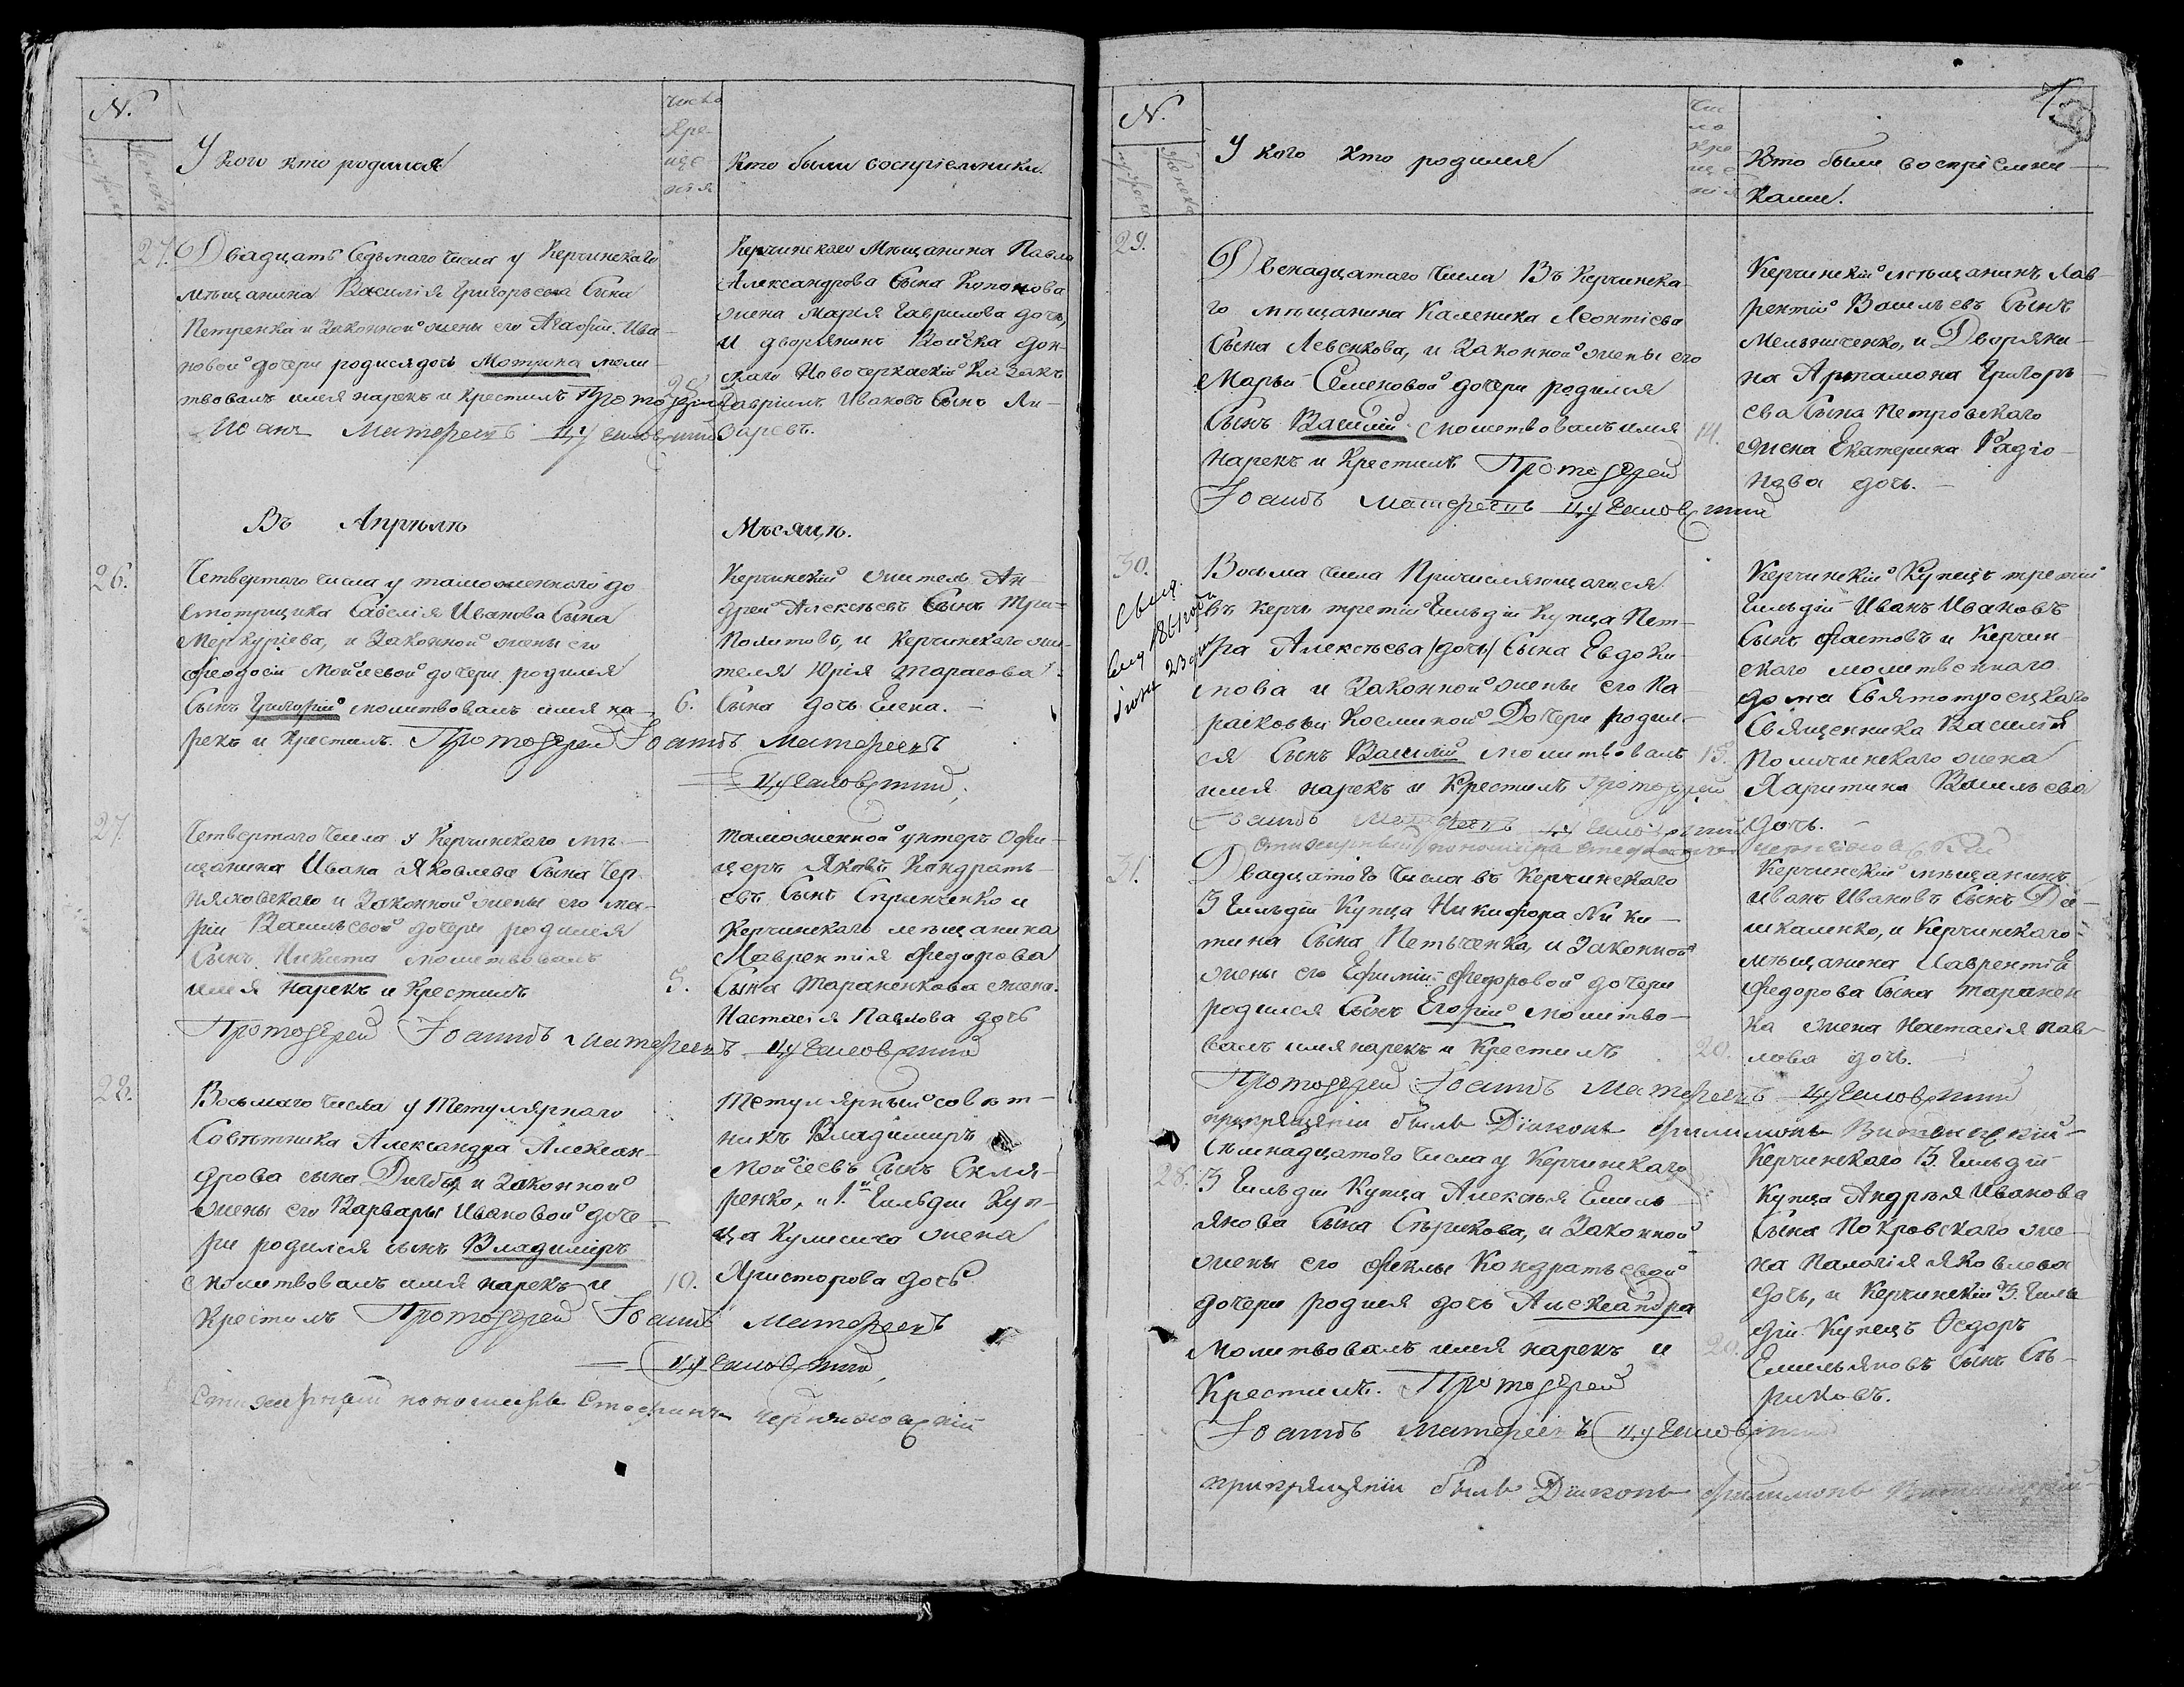 N.
У кого кто родился
число
кре-
ще
нія
Кто были воспріемники.
27.
Двадцать Седьмаго числа у Керчинскаго
мѣщанина Василія Григорьева Сына
Петренка и Законной жены его Агафіи Ива-
новой дочери родися дочь Мотрина моли-
твовалъ имя нарекъ и Крестилъ Протоіерей
Иоанъ Матереевъ Цуцимовецкій
28
Керчинскаго Мѣщанина Павла
Александрова Сына Кононова
жена Марія Гаврилова дочь,
и дворянинъ Войска дон-
скаго Новочеркаскій Козакъ
Гавріилъ Ивановъ Сынъ Ла-
заревъ.
Въ Апрѣлѣ Мѣсяцѣ.
26.
Четвертаго числа у таможеннаго до
смотрщика Савелія Иванова Сына
Меркуріева, и Законной жены его
Феодосіи Мойсѣевой дочери родился
Сынъ Григорій молитвовалъ имя на-
рекъ и крестилъ. Протоіерей Іоаннъ Матереевъ
Цуцимовецкій
6.
Керчинскій житель Ан-
дрей Алексѣевъ Сынъ Три-
Политовъ, и Керчинскаго жи-
теля Юрія Тарасова
Сына дочь Елена.
27
Четвертаго числа у Керчинскаго мѣ-
щанина Ивана Яковлева Сына Чер-
няховскаго и Законной жены его Ма-
ріи Васильевой дочери родился
Сынъ Никита молитвовалъ
имя нарекъ и Крестилъ
Протоіерей Іоаннъ Матереевъ Цуцимовецкій
5.
таможенной унтеръ офи-
церъ Яковъ Кондрать-
евъ Сынъ Спринченко и
Керчинскаго мѣщанина
Лаврентія Федорова
Сына Тараненкова жена.
Настасія Павлова дочь
28.
Восьмаго числа у Тетулярнаго
Совѣтника Александра Алексан-
дрова сына и Законной
жены его Варвары Ивановой доче-
ри родился сынъ Владиміръ
молитвовалъ имя нарекъ и
Крестилъ Протоіерей Іоаннъ Матереевъ
Цуцимовецкій
10.
Тетулярный совѣт-
никъ Владимиръ
Мойсѣевъ Сынъ Скля-
ренко, и 1й Гильдіи Куп-
ца жена
Христорова дочь
Стихирный пономарь Стефанъ Черняховскій
N.
У кого кто родился
Чис
ло
Кре
ще
нія
Кто были воспріемни-
ками.
29.
Двенадцатаго числа Въ Керчинска-
го мѣщанина Каленика Леонтіева
Сына Левенкова, и Законной жены его
Марьи Семеновой дочери родился
Сынъ Василій молитвовалъ имя
Нарекъ и Крестилъ Протоіерей
Іоаннъ Матереевъ Цуцимовецкій
14.
Керчинскій мѣщанинъ Лав-
рентій Васильевъ Сынъ
Мельниченко, и Дворяни-
на Артамона Григорь-
ева Сына Петровскаго
жена Екатерина Радіо-
нова дочь.
30.
1861 года
23
Восьма числа Причисляющагося
въ Керчи третій Гильдіи Купца Пет-
ра Алексѣева (дочь) Сына Евдоки-
мова и Законной жены его Па-
расковьи Косминой Дочери родил-
ся Сынъ Василій молитвовалъ
имя нарекъ и Крестилъ Протоіерей
Іоаннъ Матереевъ Цуцимовецкій
Стихирный пономарь Стефанъ Черняховскій
15.
Керчинскій Купецъ третій
Гильдіи Иванъ Ивановъ
Сынъ Фастовъ и Керчин-
скаго молитвеннаго
дома Святотроецкаго
Священника Василія
Поличинскаго жена
Харитина Васильева
дочь.
31.
Двадцатого числа въ Керчинскаго
3 Гильдіи Купца Никифора Ники-
тина Сына Петыченка, и Законной
жены его Ефиміи Федоровой дочери
родился Сынъ Егорій молитво-
валъ имя нарекъ и Крестилъ
Протоіерей Іоаннъ Матереевъ Цуцимовецкій
прикрещеніи былъ Діяконъ Филимонъ
20.
Керчинскій мѣщанинъ
Иванъ Ивановъ Сынъ До-
шкаленко, и Керчинскаго
мѣщанина Лаврентія
Федорова Сына Таранен
ка жена Настасія Пав-
лова дочь.
28.
Семнадцатого числа у Керчинскаго
3 Гильдіи Купца Алексѣя Емель-
янова Сына Стѣрикова, и Законной
жены его Феклы Кондратьевой
дочери родися дочь Александра
молитвовалъ имя нарекъ и
Крестилъ. Протоіерей
Іоаннъ Матереевъ Цуцимовецкій
прикрещеніи былъ Діяконъ Филимонъ
20.
Керчинскаго 3. Гильдіи
Купца Андрѣя Иванова
Сына Покровскаго же-
на Палагія Яковлева
дочь, и Керчинскій 3. Гиль
діи Купецъ Федоръ
Емельяновъ Сынъ Стѣ-
риковъ.